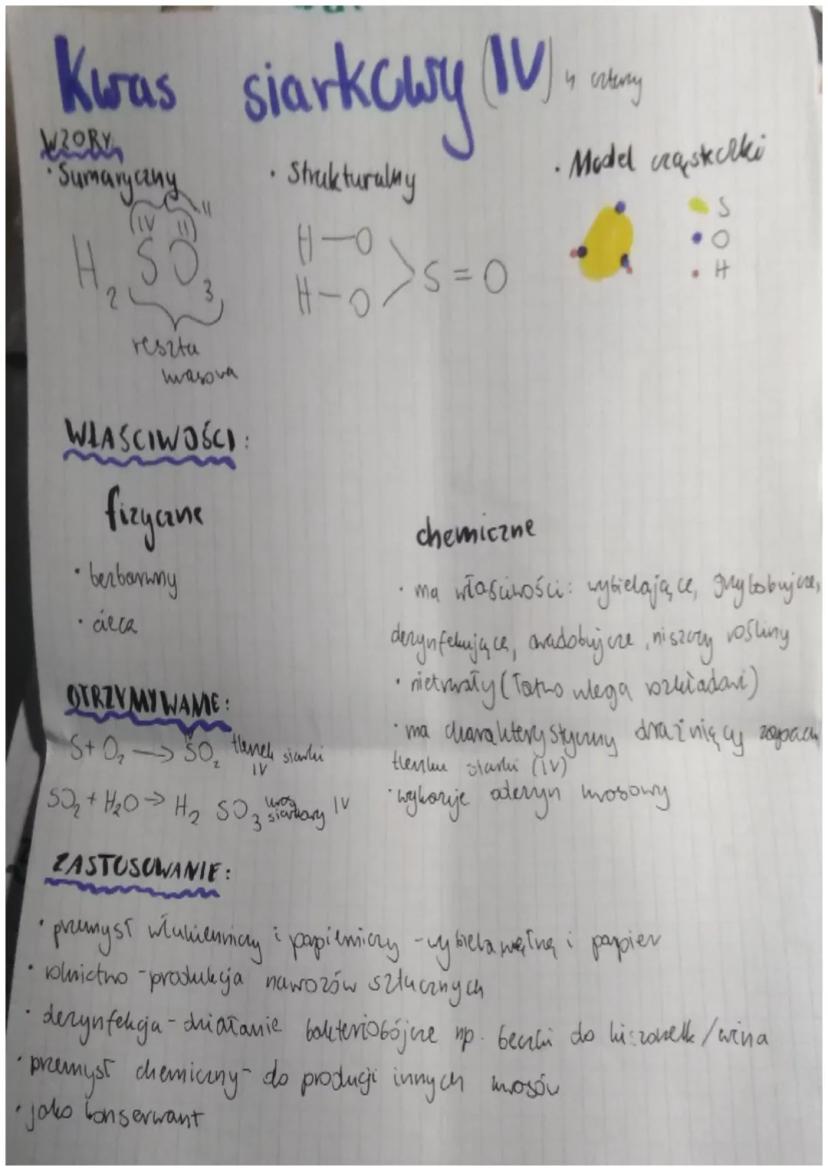 Kwas siarkowy (IV) ↳ cztery
WZORY
• Sumaryczny
• Strukturalny
• Model cząsteczki
IV II II
H₂SO₃
reszta
kwasowa
H—O
H—O
S=O
S
O
H
WŁAŚCIWOŚCI:
fizyczne
• bezbarwny
• ciecz
chemiczne
• ma właściwości: wybielające, grzybobójcze,
dezynfekujące, owadobójcze, niszczy rośliny
• nietrwały (łatwo ulega rozkładowi)
• ma charakterystyczny drażniący zapach
tlenku siarki (IV)
• wykazuje odczyn kwasowy
OTRZYMYWANIE:
S + O₂ → SO₂ tlenek siarki
IV
SO₂ + H₂O → H₂ SO₃ kwas siarkowy IV
ZASTOSOWANIE:
• przemysł włukienniczy i papierniczy - wybiela wełnę i papier
• rolnictwo - produkcja nawozów sztucznych
• dezynfekcja - działanie bakteriobójcze np. beczki do kiszonek/wina
• przemysł chemiczny - do producji innych kwasów
• jako konserwant